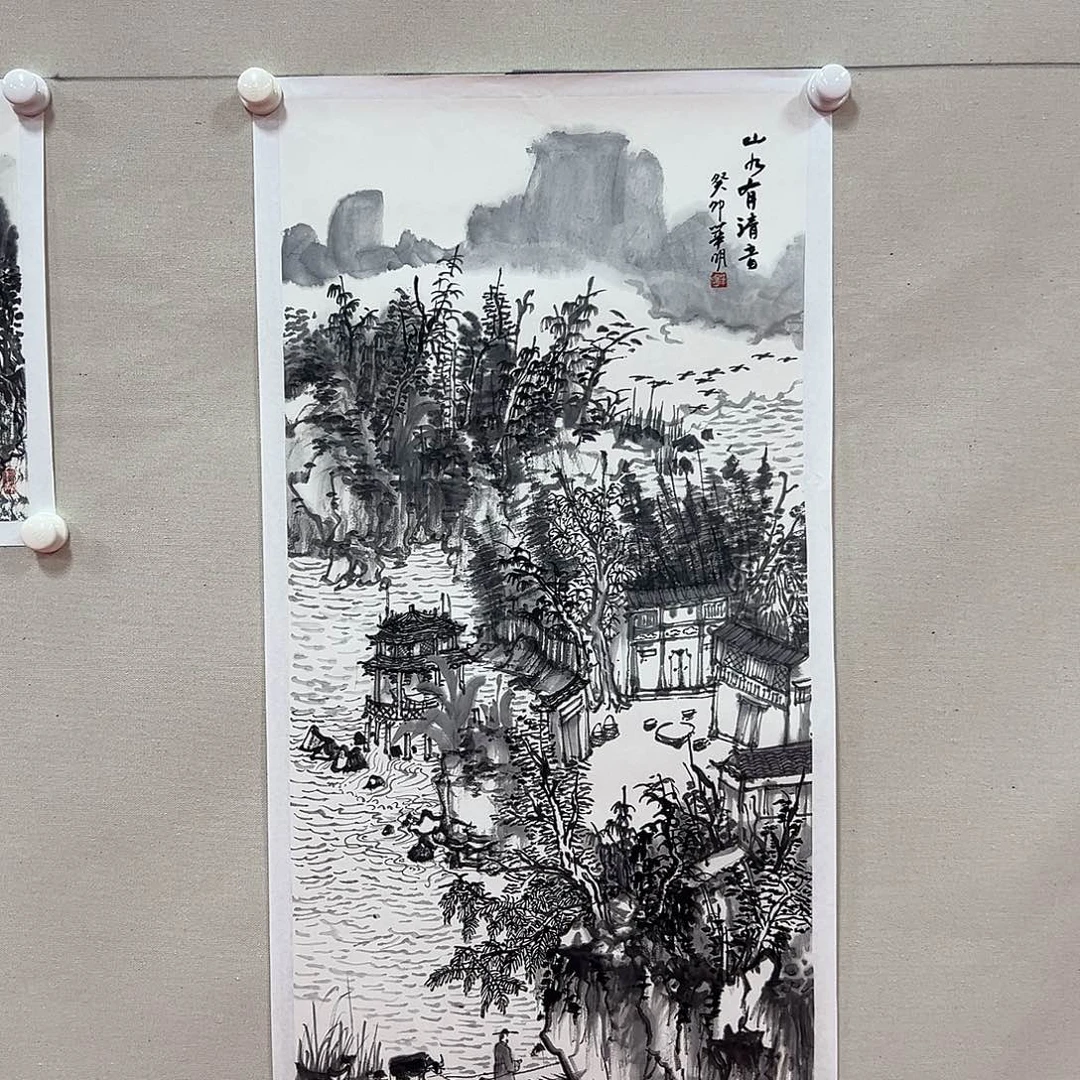 山水有清音
癸卯華明